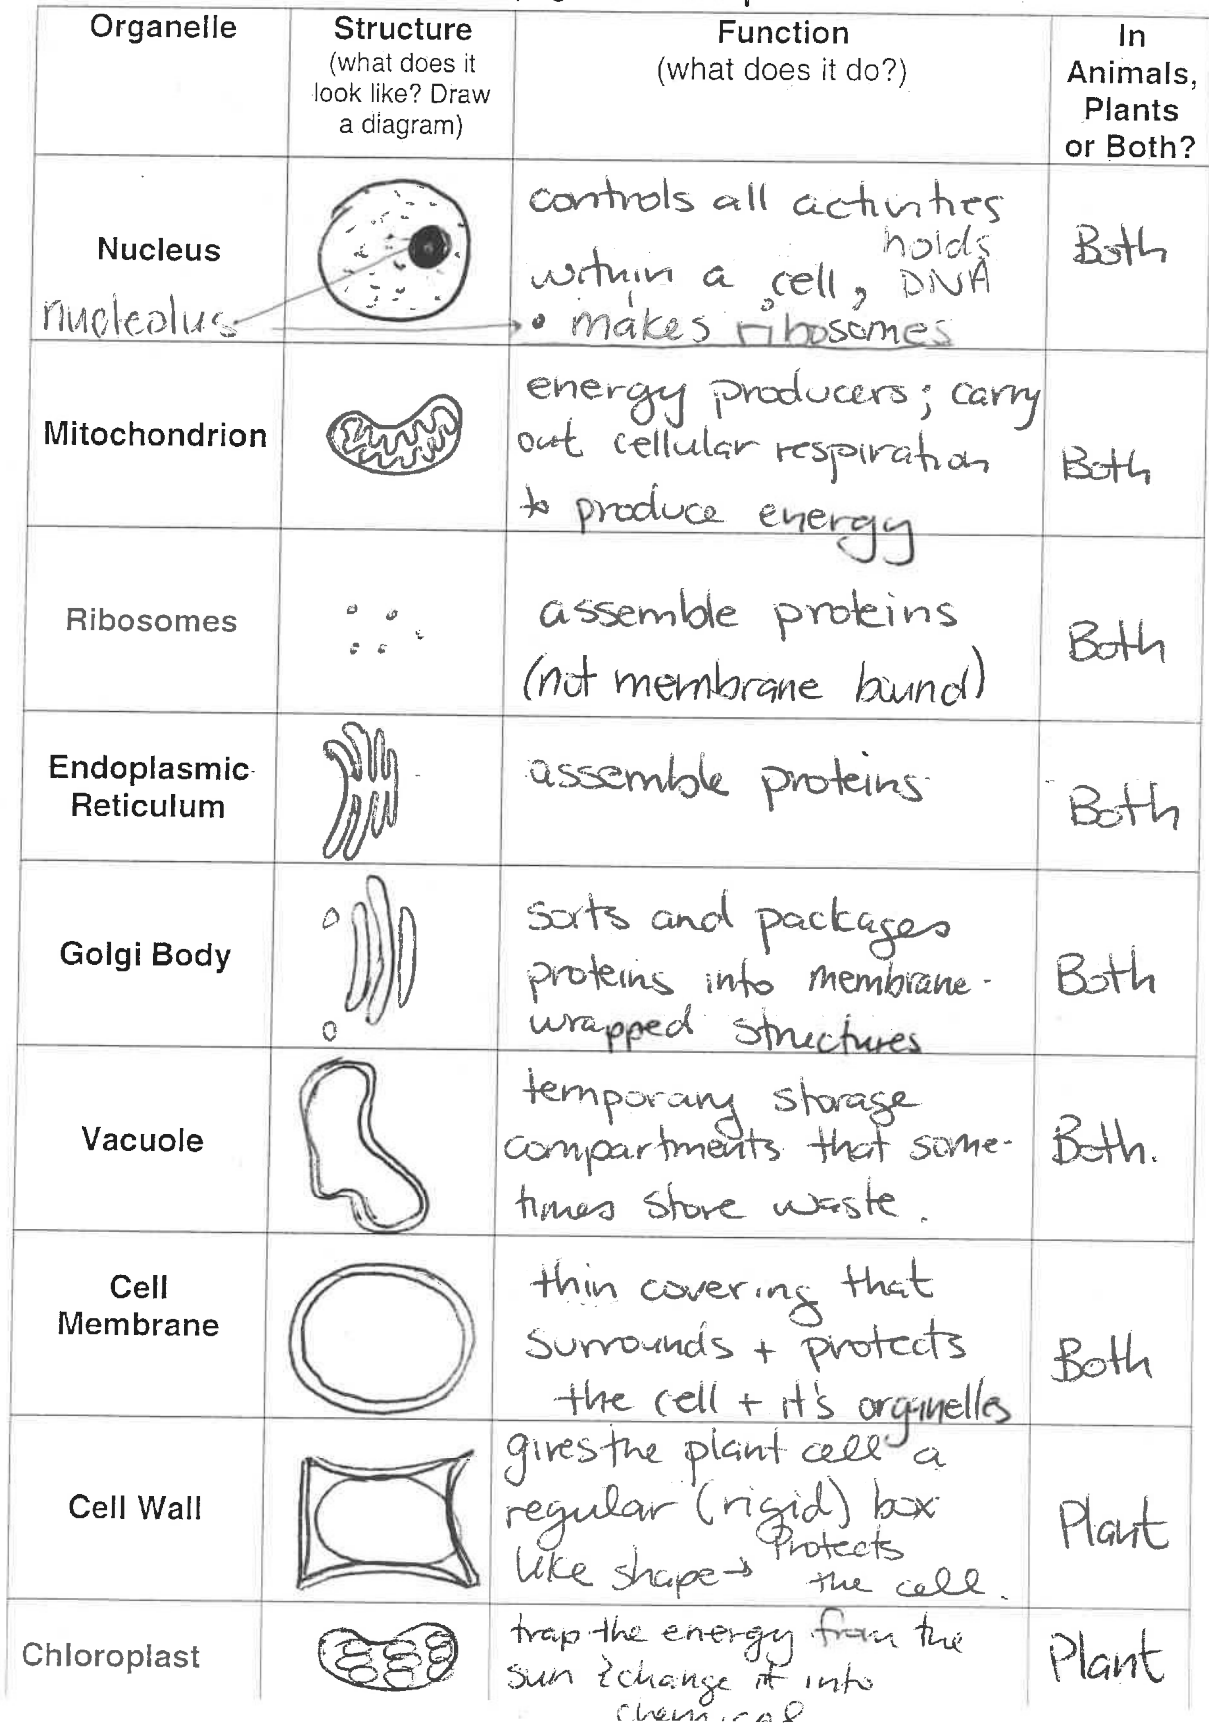 Organelle
Structure
(what does it
look like? Draw
a diagram)
Function
(what does it do?)
In
Animals,
Plants
or Both?
Nucleus
nucleolus
controls all activities
within a cell, holds DNA
• makes ribosomes
Both
Mitochondrion
energy producers; carry
out cellular respiration
to produce energy
Both
Ribosomes
assemble proteins
(not membrane bound)
Both
Endoplasmic
Reticulum
assemble proteins
Both
Golgi Body
sorts and packages
proteins into membrane-
wrapped structures
Both
Vacuole
temporary storage
compartments that some-
times store waste.
Both.
Cell
Membrane
thin covering that
surrounds + protects
the cell + it's organelles
Both
Cell Wall
gives the plant cell a
regular (rigid) box
like shape → Protects
the cell.
Plant
Chloroplast
trap the energy from the
sun & change it into
chemical
Plant